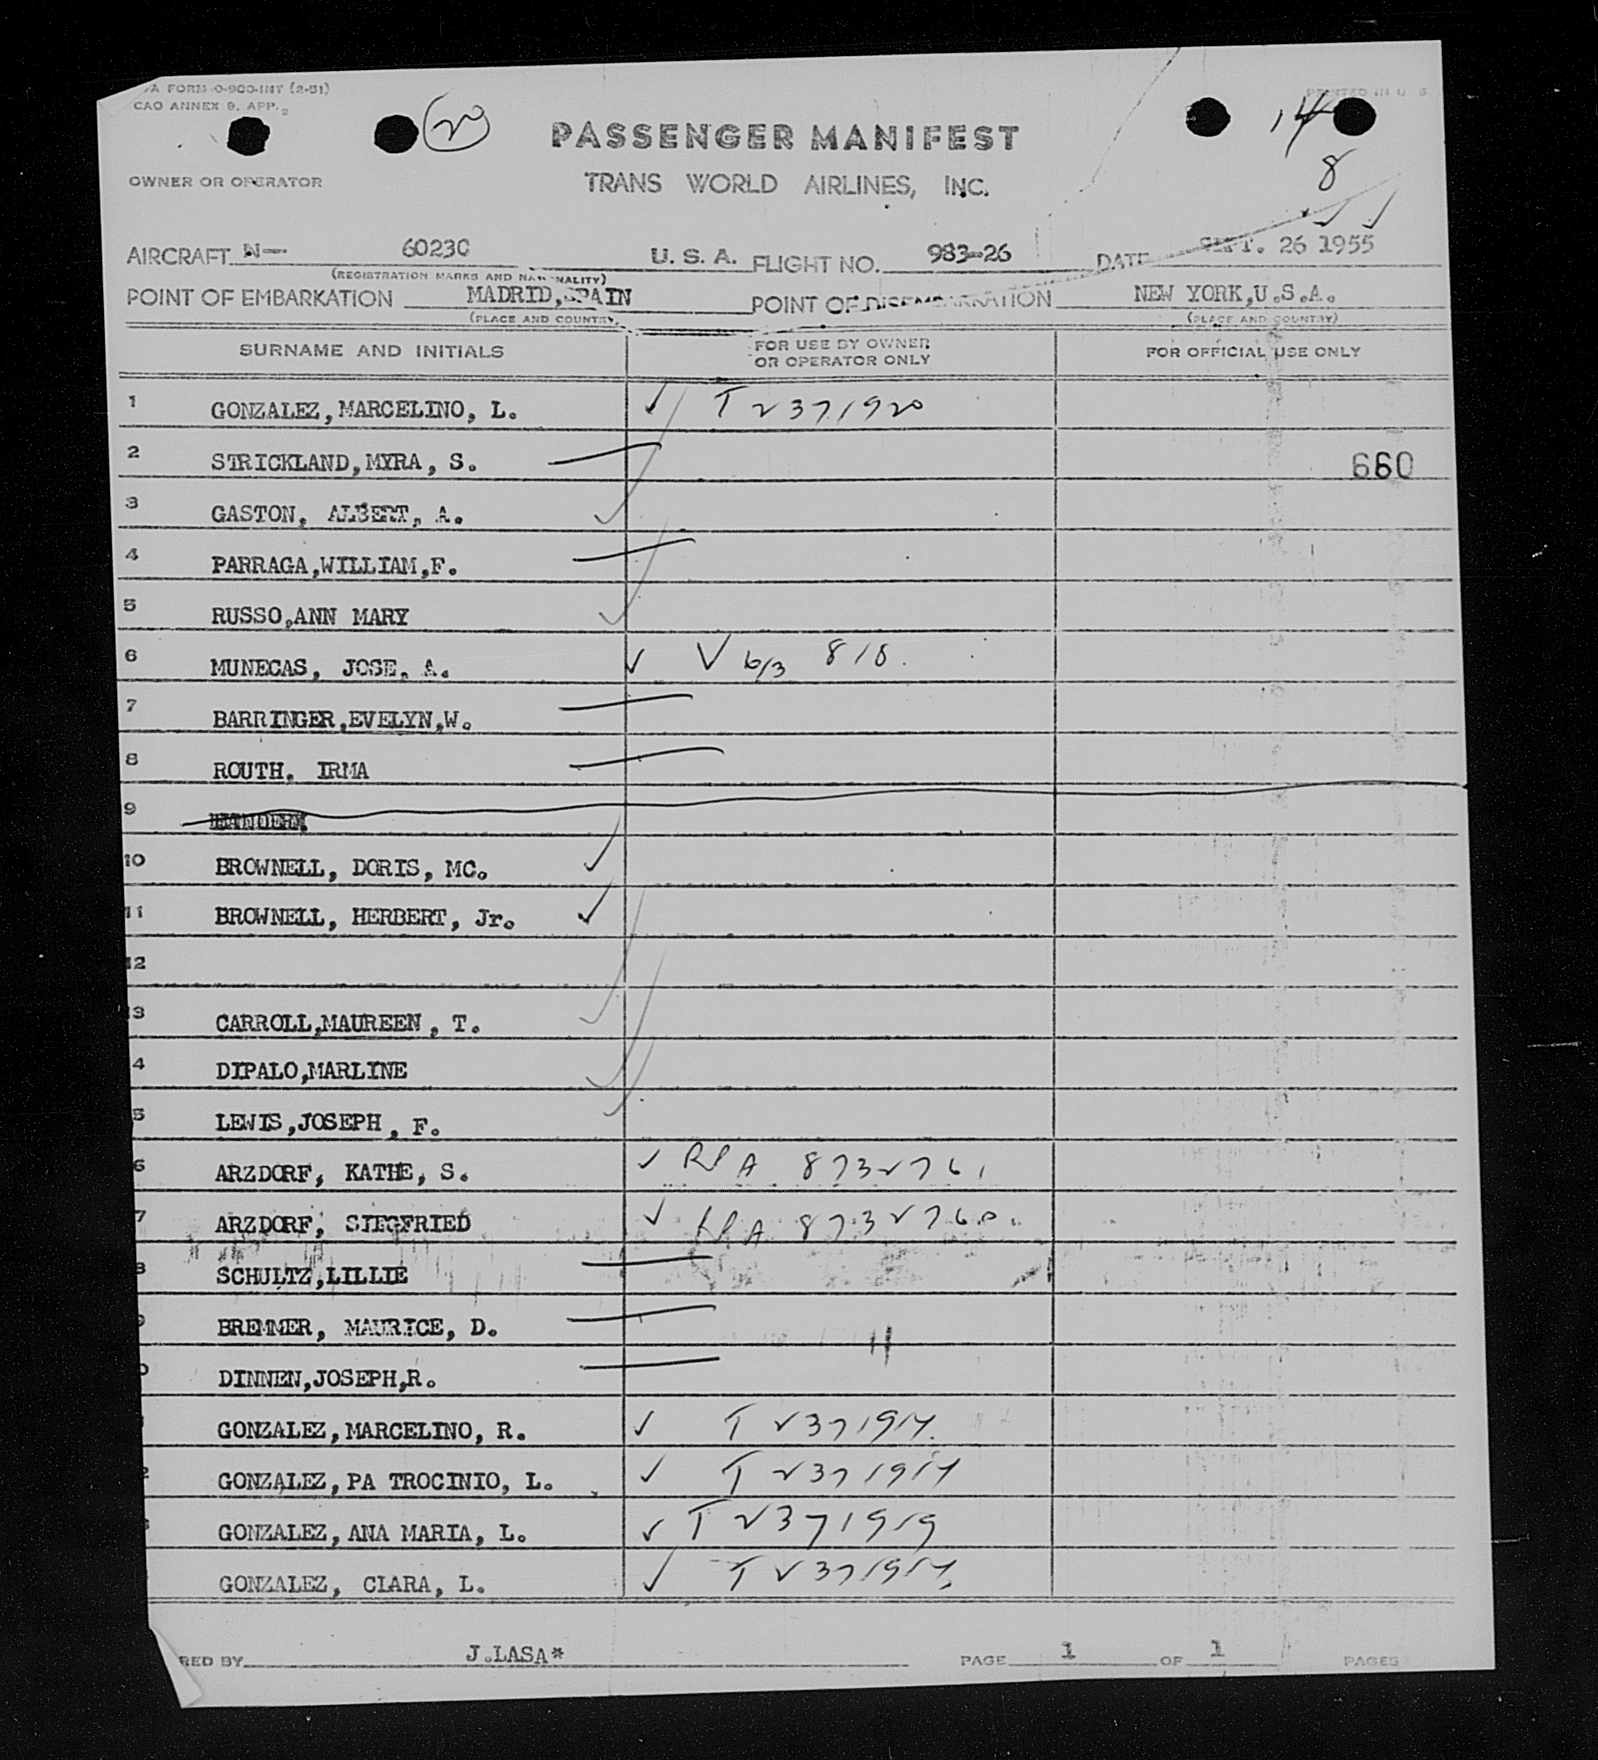 A FORM O-900-INT (2-51)
CAO ANNEX 9. APP. 2
PRINTED IN U S
20
14
8
PASSENGER MANIFEST
OWNER OR OPERATOR
TRANS WORLD AIRLINES, INC.
AIRCRAFT N— 6023C U. S. A. FLIGHT NO. 983-26 DATE SEPT. 26 1955
(REGISTRATION MARKS AND NATIONALITY)
POINT OF EMBARKATION MADRID,SPAIN POINT OF DISEMBARKATION NEW YORK,U.S.A.
(PLACE AND COUNTRY) (PLACE AND COUNTRY)
SURNAME AND INITIALS FOR USE BY OWNER OR OPERATOR ONLY FOR OFFICIAL USE ONLY
1 GONZALEZ,MARCELINO, L. ✓ T 2371920
2 STRICKLAND,MYRA, S. — 660
3 GASTON, ALBERT, A. ✓
4 PARRAGA,WILLIAM,F. —
5 RUSSO,ANN MARY ✓
6 MUNECAS, JOSE, A. ✓ V 6/3 818.
7 BARRINGER,EVELYN,W. —
8 ROUTH, IRMA —
9
10 BROWNELL, DORIS, MC. ✓
11 BROWNELL, HERBERT, Jr. ✓
12
13 CARROLL,MAUREEN, T. ✓
4 DIPALO,MARLINE ✓
5 LEWIS,JOSEPH, F. ✓
6 ARZDORF, KATHE, S. ✓ RPA 8732761
7 ARZDORF, SIEGFRIED ✓ RPA 8732760.
8 SCHULTZ,LILLIE —
9 BREMNER, MAURICE, D. —
0 DINNEN,JOSEPH,R. —
GONZALEZ,MARCELINO, R. ✓ T 2371917.
2 GONZALEZ,PA TROCINIO, L. ✓
3 GONZALEZ,ANA MARIA, L. ✓ T 2371919
GONZALEZ, CLARA, L. ✓
RED BY J.LASA* PAGE 1 OF 1 PAGES